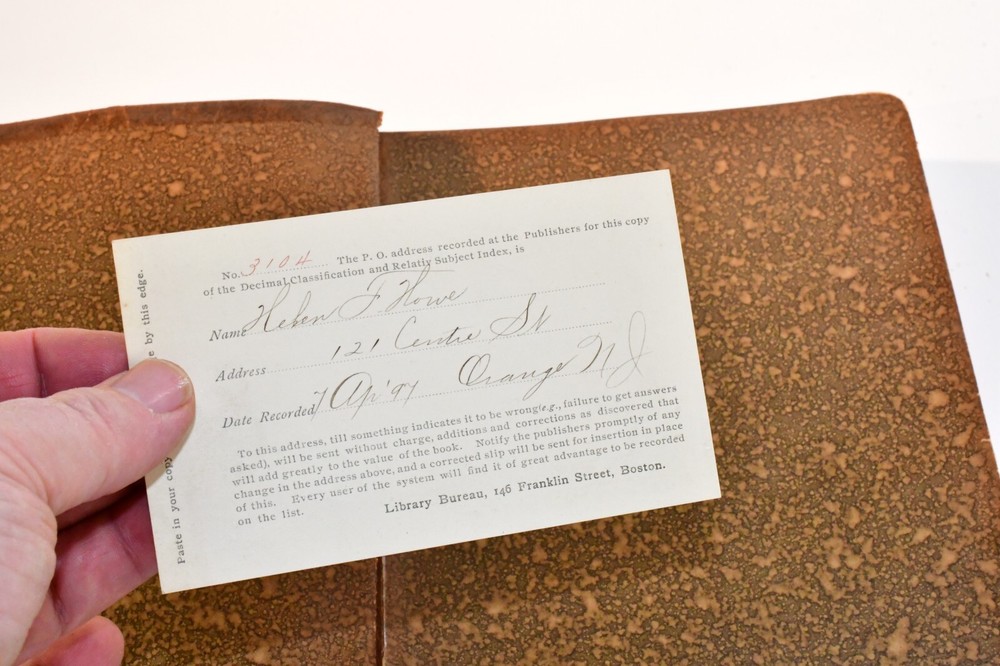 No. 3104 The P. O. address recorded at the Publishers for this copy
of the Decimal Classification and Relativ Subject Index, is
Name Helen F Howe
Address 121 Centre St
Date Recorded 7 Ap '97 Orange N J
To this address, till something indicates it to be wrong (e.g., failure to get answers
asked), will be sent without charge, additions and corrections as discovered that
will add greatly to the value of the book. Notify the publishers promptly of any
change in the address above, and a corrected slip will be sent for insertion in place
of this. Every user of the system will find it of great advantage to be recorded
on the list.
Library Bureau, 146 Franklin Street, Boston.
Paste in your copy by this edge.